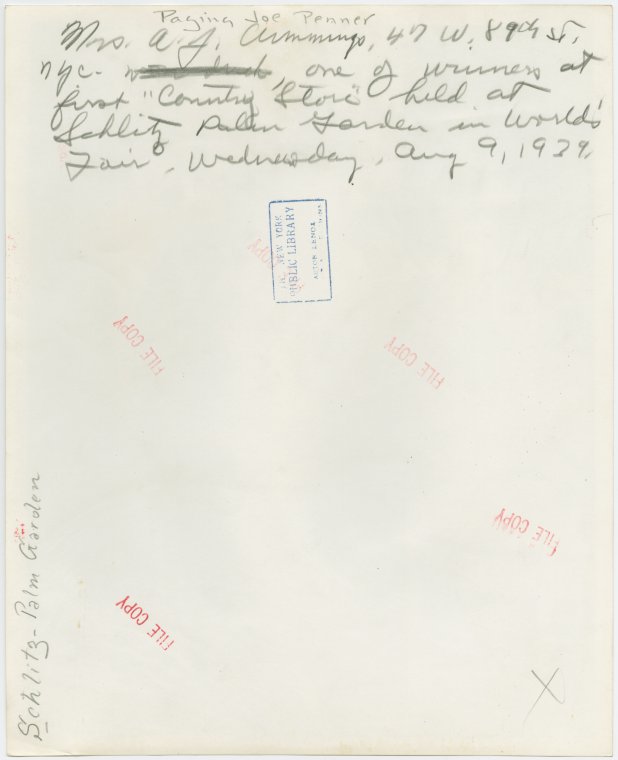 Paging Joe Penner
Mrs. A. J. Cummings, 47 W. 89th St.
nyc. one of winners at
first "Country Store" held at
Schlitz Palm Garden in World's
Fair, Wednesday, Aug 9, 1939.
NEW YORK
PUBLIC LIBRARY
ASTOR LENOX
FILE COPY
FILE COPY
FILE COPY
FILE COPY
FILE COPY
Schlitz-Palm Garden
X